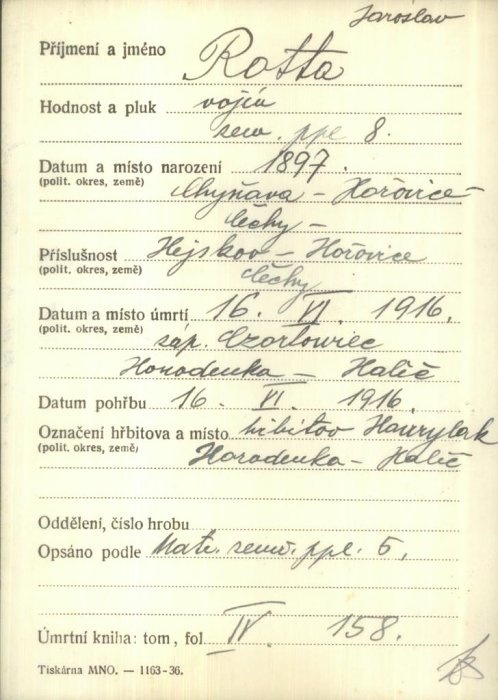 Jaroslav
Příjmení a jméno Rotta
Hodnost a pluk vojín
zem. ppl 8.
Datum a místo narození 1897.
(polit. okres, země) Chyňava - Hořovice -
Čechy -
Příslušnost Hejskov - Hořovice
(polit. okres, země) Čechy
Datum a místo úmrtí 16. VI. 1916.
(polit. okres, země) záp. Czortowiec
Horodenka - Halič
Datum pohřbu 16. VI. 1916.
Označení hřbitova a místo hřbitov Hawrylak
(polit. okres, země) Horodenka - Halič
Oddělení, číslo hrobu
Opsáno podle Matr. zem. ppl. 5,
Úmrtní kniha: tom, fol IV. 158.
Tiskárna MNO. — 1163-36.